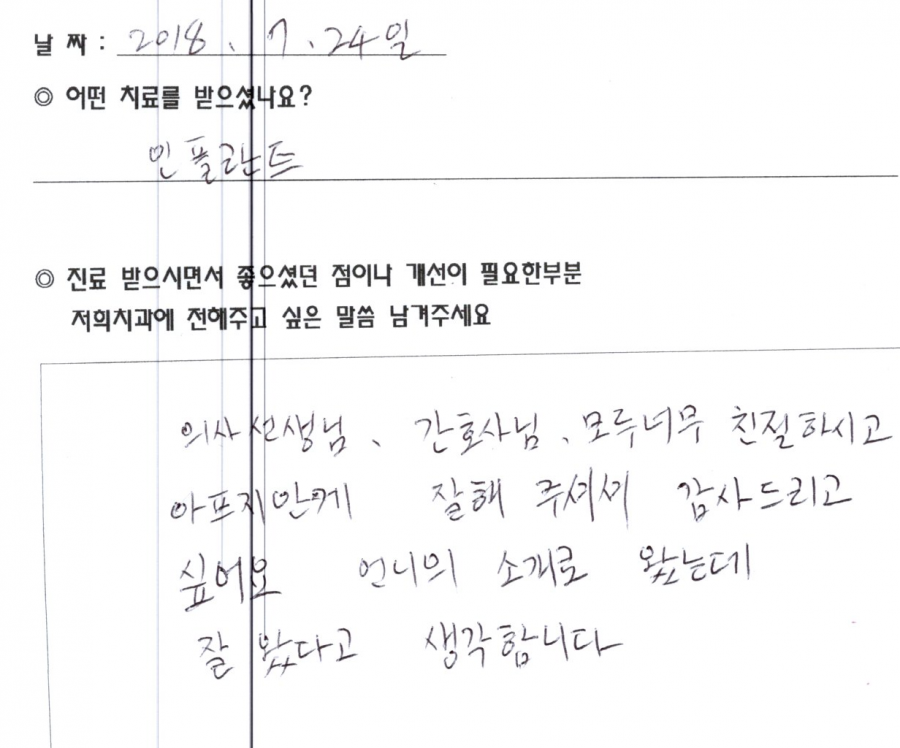 날 짜 : 2018. 7. 24일
◎ 어떤 치료를 받으셨나요?
인플란트
◎ 진료 받으시면서 좋으셨던 점이나 개선이 필요한부분
저희치과에 전해주고 싶은 말씀 남겨주세요
의사선생님、 간호사님、모두너무 친절하시고
아프지안케 잘해 주셔서 감사드리고
싶어요 언니의 소개로 왔는데
잘 왔다고 생각합니다